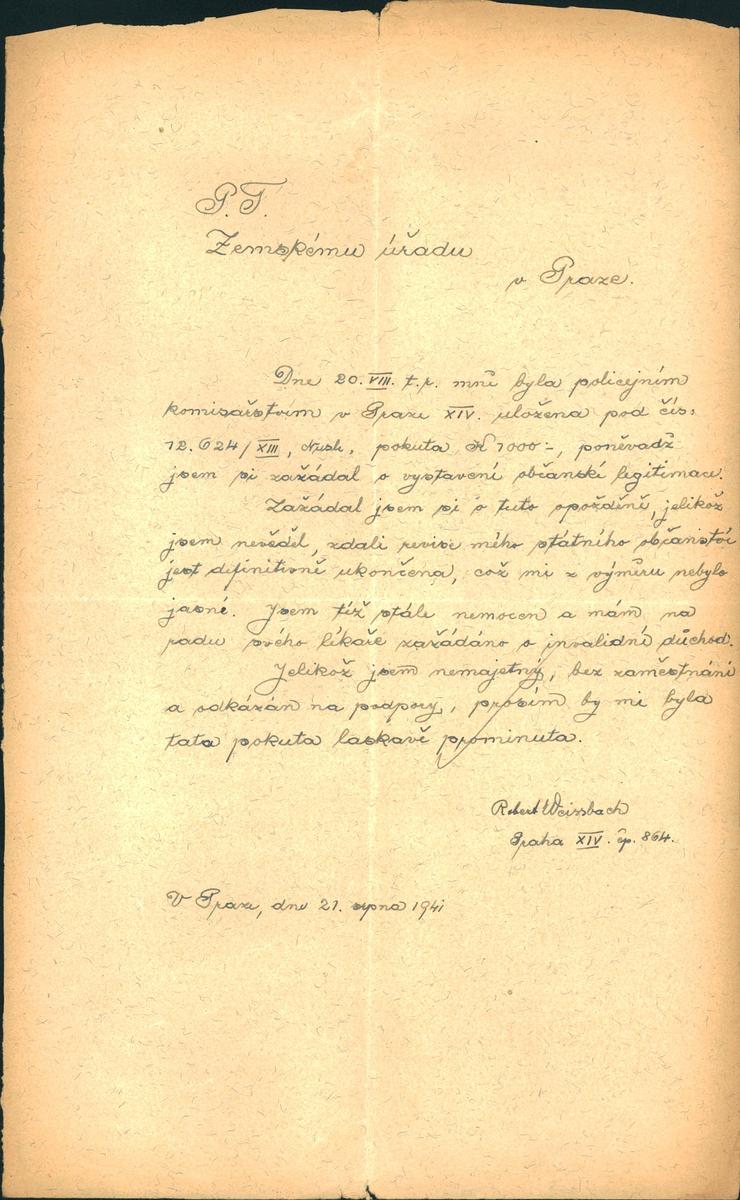 P. T.
Zemskému úřadu
v Praze.
Dne 20. VIII. t.r. mně byla policejním
komisařstvím v Praze XIV. uložena pod čís:
12.624/XIII, pokuta K 1000:-, poněvadž
jsem si zažádal o vystavení občanské legitimace.
Zažádal jsem si o tuto opožděně, jelikož
jsem nevěděl, zdali revise mého státního občanství
jest definitivně ukončena, což mi z výměru nebylo
jasné. Jsem též stále nemocen a mám na
radu svého lékaře zažádáno o invalidní důchod.
Jelikož jsem nemajetný, bez zaměstnání
a odkázán na podpory, prosím by mi byla
tata pokuta laskavě prominuta.
Robert Weissbach
Praha XIV. čp. 864.
V Praze, dne 21. srpna 1941